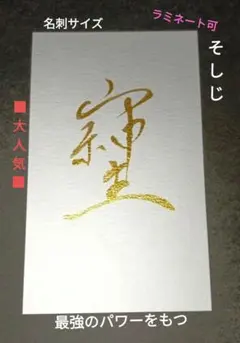 名刺サイズ
ラミネート可
そしじ
■大人気■
最強のパワーをもつ